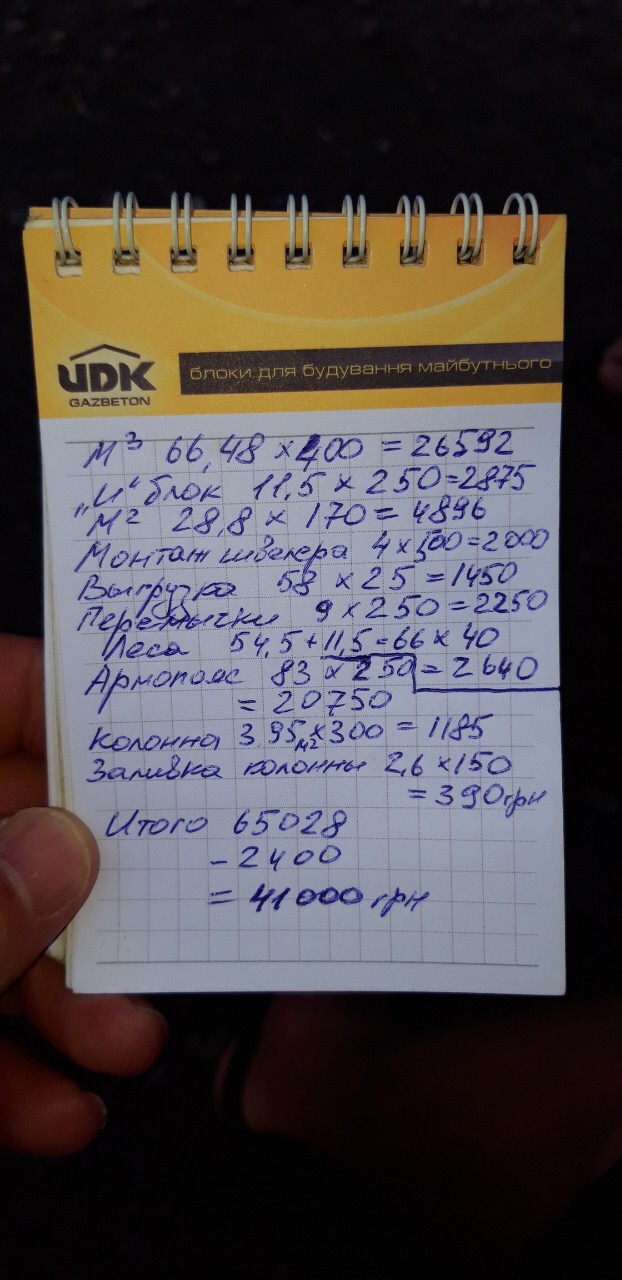 UDK
GAZBETON
блоки для будування майбутнього
М³ 66,48 × 400 = 26592
"U" блок 11,5 × 250 = 2875
М² 28,8 × 170 = 4896
Монтаж швелера 4 × 500 = 2000
Выгрузка 58 × 25 = 1450
Перемычки 9 × 250 = 2250
Леса 54,5 + 11,5 = 66 × 40
= 2640
Армопояс 83 × 250
= 20750
Колонна 3.95м² × 300 = 1185
Заливка колонны 2,6 × 150
= 390грн
Итого 65028
- 2400
= 41000 грн